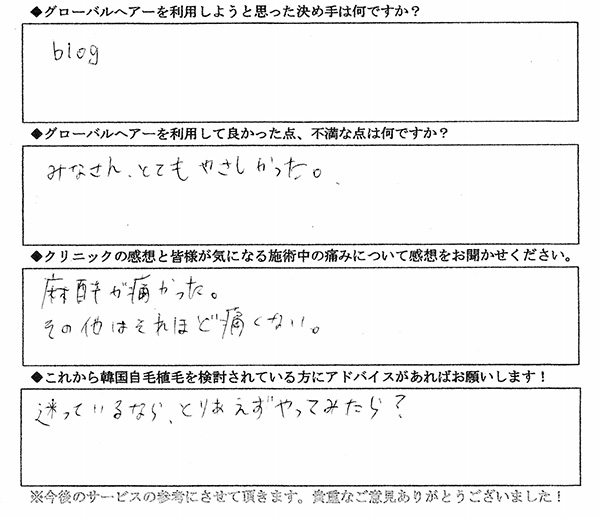 ◆グローバルヘアーを利用しようと思った決め手は何ですか？
blog
◆グローバルヘアーを利用して良かった点、不満な点は何ですか？
みなさん、とてもやさしかった。
◆クリニックの感想と皆様が気になる施術中の痛みについて感想をお聞かせください。
麻酔が痛かった。
その他はそれほど痛くない。
◆これから韓国自毛植毛を検討されている方にアドバイスがあればお願いします！
迷っているなら、とりあえずやってみたら？
※今後のサービスの参考にさせて頂きます。貴重なご意見ありがとうございました！